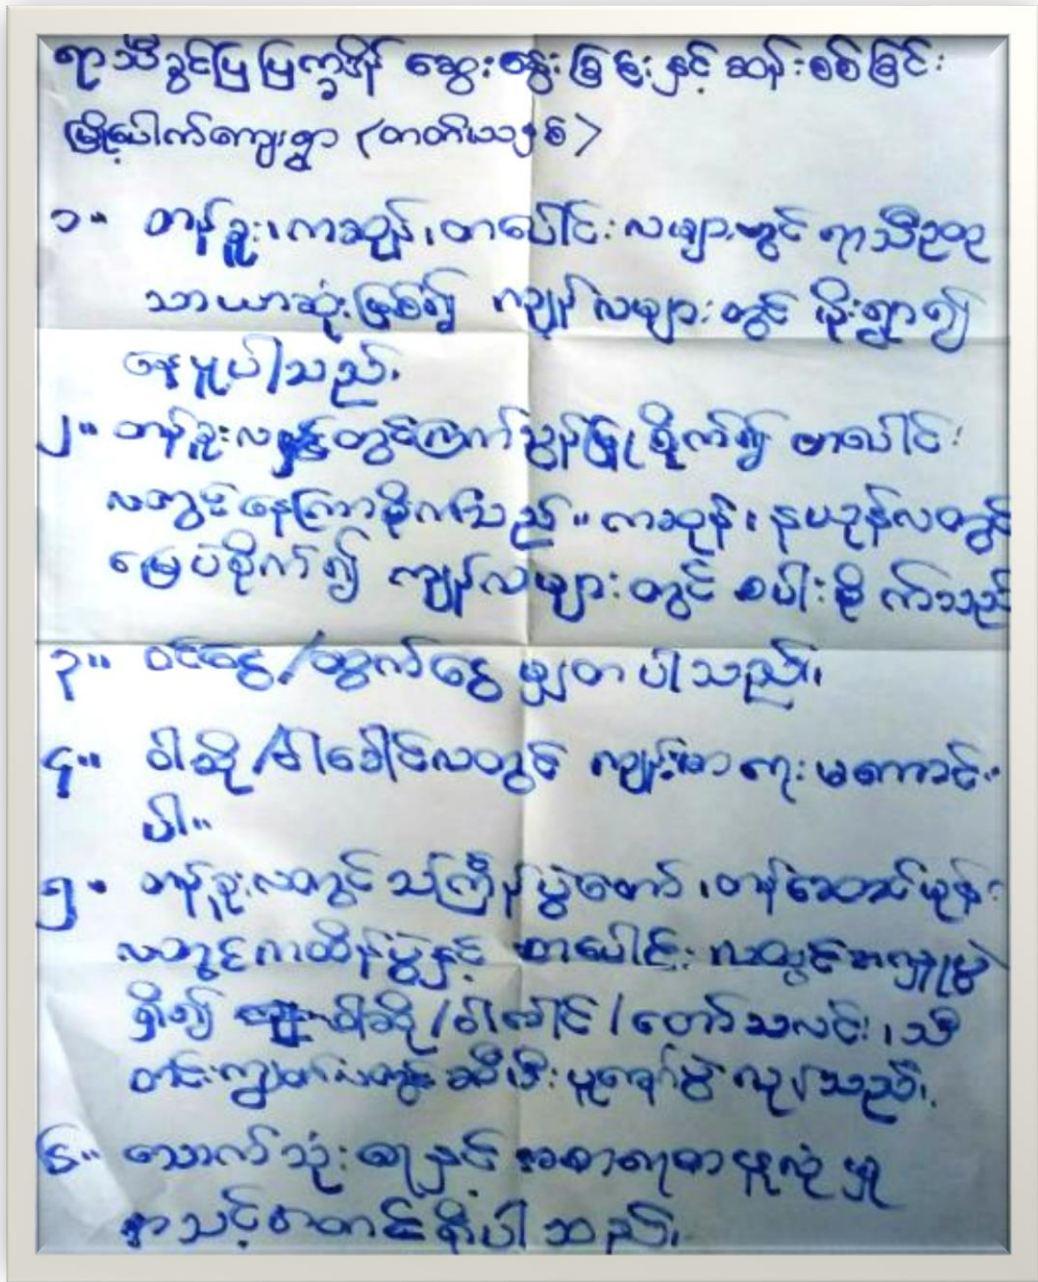 ရာသီခွင်ပြပြက္ခဒိန် ဆွေးနွေးခြင်းနှင့် ဆန်းစစ်ခြင်း
မြို့ပေါက်ကျေးရွာ
၁။ တန်ခူး၊ ကဆုန်၊ တပေါင်းလများတွင် ရာသီဥတု
သာယာဆုံးဖြစ်၍ ကျန်လများတွင် မိုးရွာ၍
နေပူပါသည်။
၂။ တန်ခူးလ တွင် စိုက်၍ တပေါင်း
လတွင်နေကြာစိုက်သည်။ ကဆုန်၊ နယုန်လတွင်
မြေပဲစိုက်၍ ကျန်လများတွင် စပါးစိုက်သည်
၃။ ဝင်ငွေ/ထွက်ငွေ မျှတပါသည်။
၄။ ဝါဆို/ဝါခေါင်လတွင် ကျန်းမာရေး မကောင်း
ပါ။
၅။ တန်ခူးလတွင် သင်္ကြန်ပွဲတော်၊ တန်ဆောင်မုန်း
လတွင်ကထိန်ပွဲနှင့် တပေါင်းလတွင်အလှူပွဲ
ရှိ၍ ဝါဆို/ဝါခေါင်/တော်သလင်း၊ သီ
တင်းကျွတ်လတွင် ဆီမီး ပွဲ သည်။
၆။ သောက်သုံးရေနှင့်